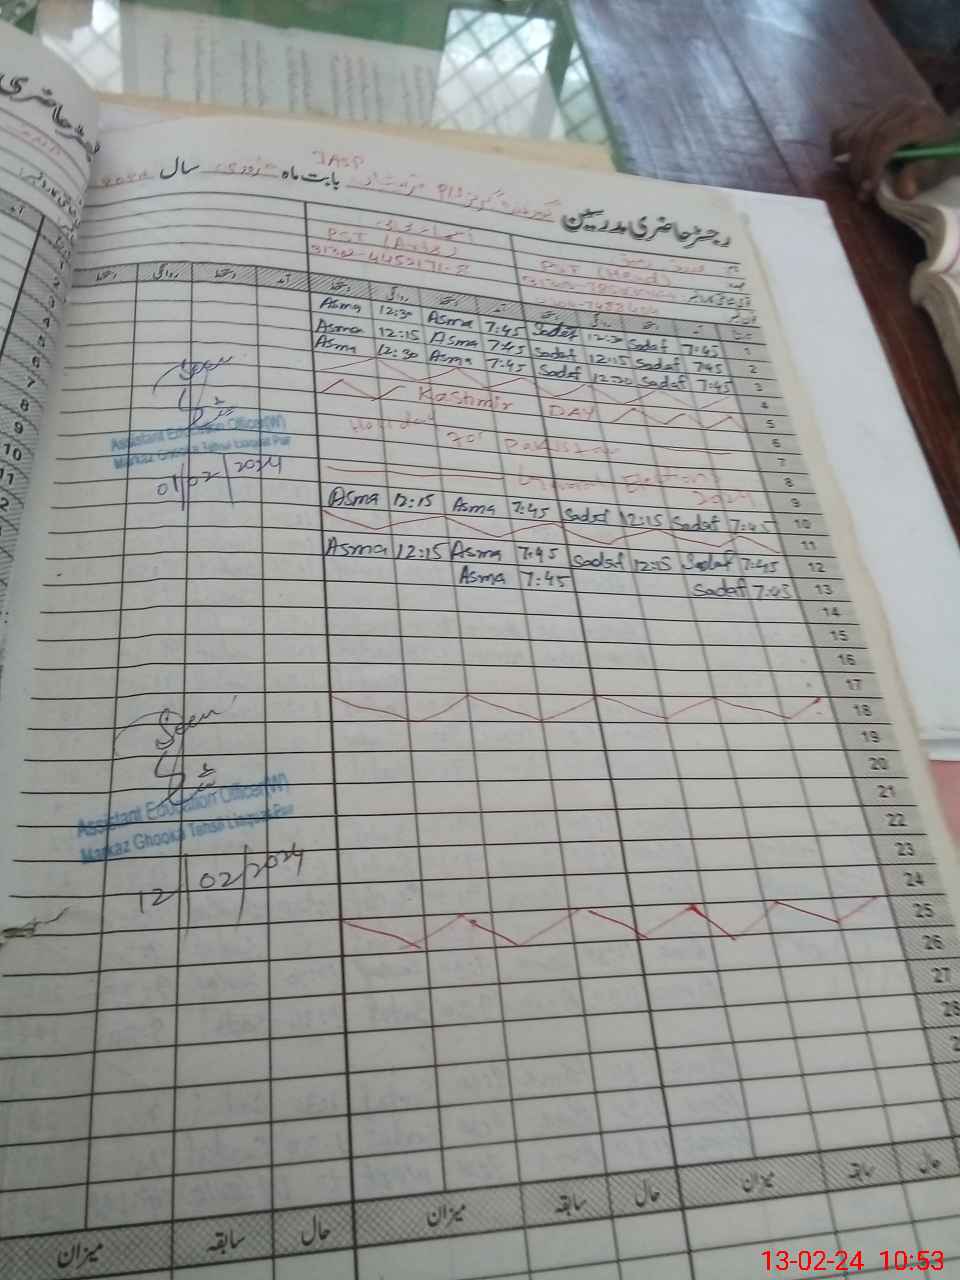 رجسٹر حاضری مدرسین بابت ماہ فروری سال
JASP
PST (Head)
PST
آمد دستخط روانگی دستخط آمد دستخط روانگی دستخط آمد دستخط روانگی دستخط
Asma 12:30 Asma 7:45 Sadaf 12:30 Sadaf 7:45 1
Asma 12:15 Asma 7:45 Sadaf 12:15 Sadaf 7:45 2
Asma 12:30 Asma 7:45 Sadaf 12:30 Sadaf 7:45 3
4
Kashmir DAY 5
Holiday for Pakistan 6
7
Election 8
2024 9
Asma 12:15 Asma 7:45 Sadaf 12:15 Sadaf 7:45 10
11
Asma 12:15 Asma 7:45 Sadaf 12:15 Sadaf 7:45 12
Asma 7:45 Sadaf 7:45 13
14
15
16
17
18
19
20
21
22
23
24
25
26
27
28
Seen
Assistant Education Officer(W)
Markaz Ghooka Tehsil Liaquat Pur
01/02/2024
Seen
Assistant Education Officer(W)
Markaz Ghooka Tehsil Liaquat Pur
12/02/2024
حال سابقہ میزان حال سابقہ میزان حال سابقہ میزان
13-02-24 10:53